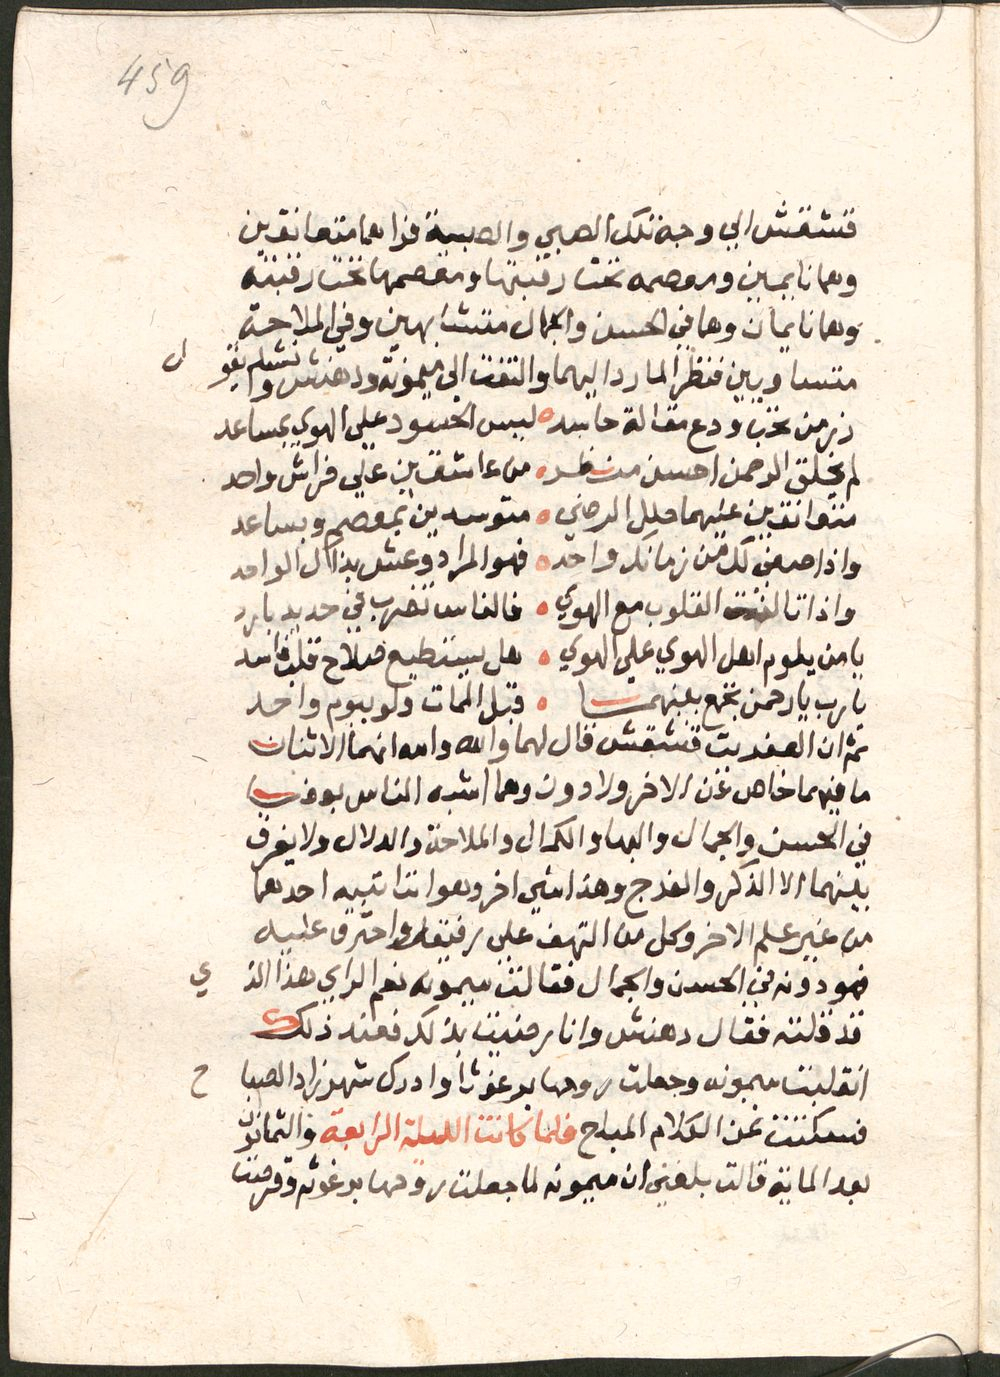 459
قشقش الي وجه تلك الصبي والصبية فراهما متعانقين
وهما نايمين ومعصمه تحت رقبتها ومعصمها تحت رقبته
وهما نايمان وهما في الحسن والجمال متشابهين وفي الملاحة
متساويين فنظر المارد اليهما والتفت الي ميمونة ودهنش وانشد يقول
زر من تحب ودع مقالة حاسد ليس الحسود علي الهوي بمساعد
لم يخلق الرحمن احسن منظر من عاشقين علي فراش واحد
متعانقين عليهما حلل الرضي متوسدين بمعصم وبساعد
واذا صفي لك من زمانك واحد فهو المراد وعش بذاك الواحد
واذا تالفت القلوب مع الهوي فالناس تضرب في حديد بارد
يا من يلوم اهل الهوي علي الهوي هل يستطيع صلاح قلب فاسد
يا رب يا رحمن تجمع بينهما قبل الممات ولو بيوم واحد
ثم ان العفريت قشقش قال لهما والله والله انهما الاثنان
ما فيهما خاص عن الاخر ولا دون وهما اشبه الناس بعضا
في الحسن والجمال والبها والكمال والملاحة والدلال ولا يفرق
بينهما الا الذكر والفرج وهذا شي اخر وهوا ننا ننبه احدهما
من غير علم الاخر وكل من التهف علي رفيقه واحترق عليه
فهو دونه في الحسن والجمال فقالت ميمونه نعم الراي هذا الذي
قد قلته فقال دهنش وانا رضيت بذلك فعند ذلك
انقلبت ميمونه وجعلت روحها برغوثا وادرك شهرزاد الصباح
فسكتت عن الكلام المباح فلما كانت الليلة الرابعة والثمانون
بعد الماية قالت بلغني ان ميمونه لما جعلت روحها برغوثه وقرصت